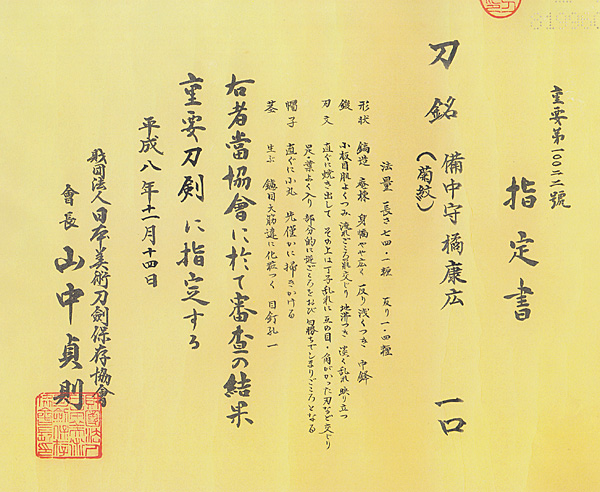 重要第一〇〇二二號
指定書
刀 銘 備中守橘康広 一口
(菊紋)
法量 長さ七四・一糎 反り一・四糎
形状 鎬造 庵棟 身幅やや広く 反り浅くつき 中鋒
鍛 小板目肌よくつみ 流れごころ肌交じり 地沸つき 淡く乱れ映り立つ
刃文 直ぐに焼き出して その上は丁子乱れに互の目・角がかった刃など交じり
足・葉よく入り 部分的に逆ごころをおび 匂勝ちでしまりごころとなる
帽子 直ぐに小丸 先僅かに掃きかける
茎 生ぶ 鑢目大筋違に化粧つく 目釘孔一
右者當協會に於て審査の結果
重要刀剣に指定する
平成八年十一月十四日
財団法人日本美術刀劍保存協會
會長 山中貞則